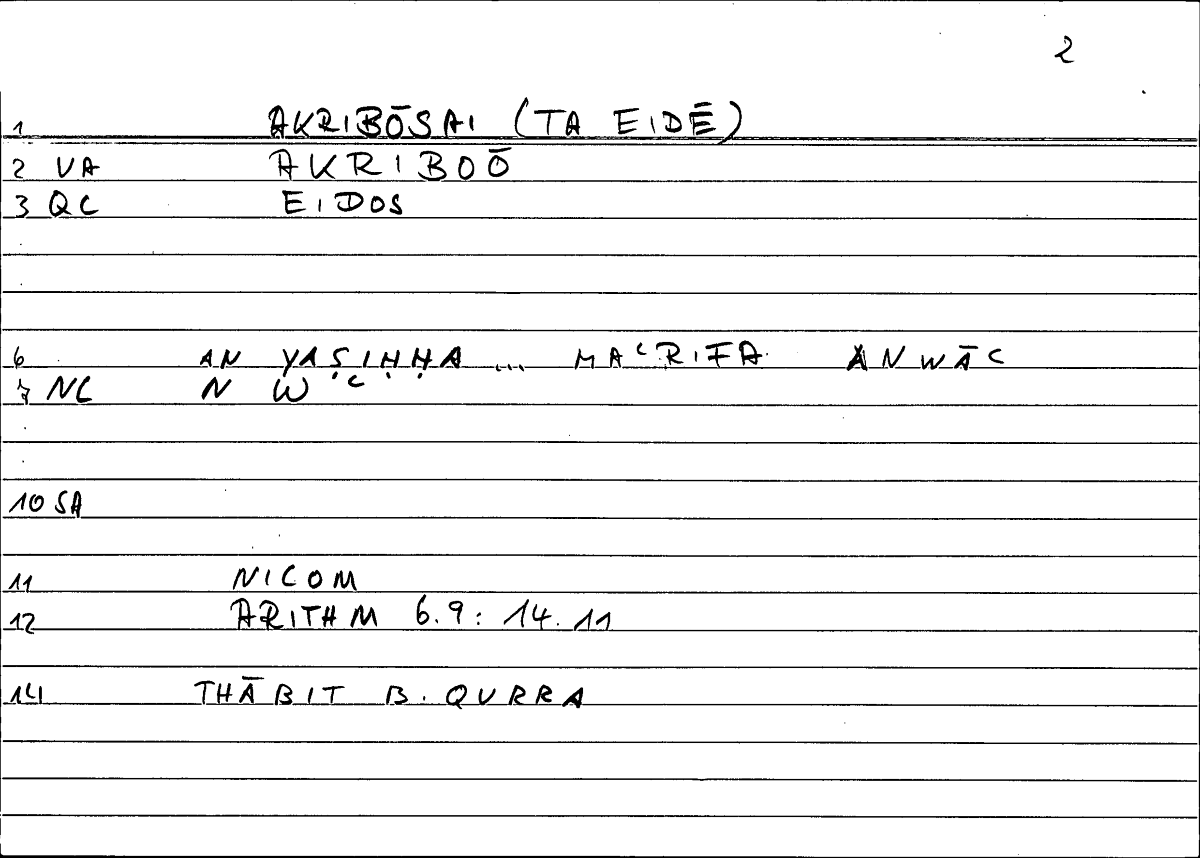 2
1 AKRIBŌSAI (TA EIDĒ)
2 VA AKRIBOŌ
3 QC EIDOS
6 AN YAṢIḤḤA ... MAᶜRIFA ANWĀᶜ
7 NC N W ᶜ
10 SA
11 NICOM
12 ARITHM 6.9: 14.11
14 THĀBIT B. QURRA